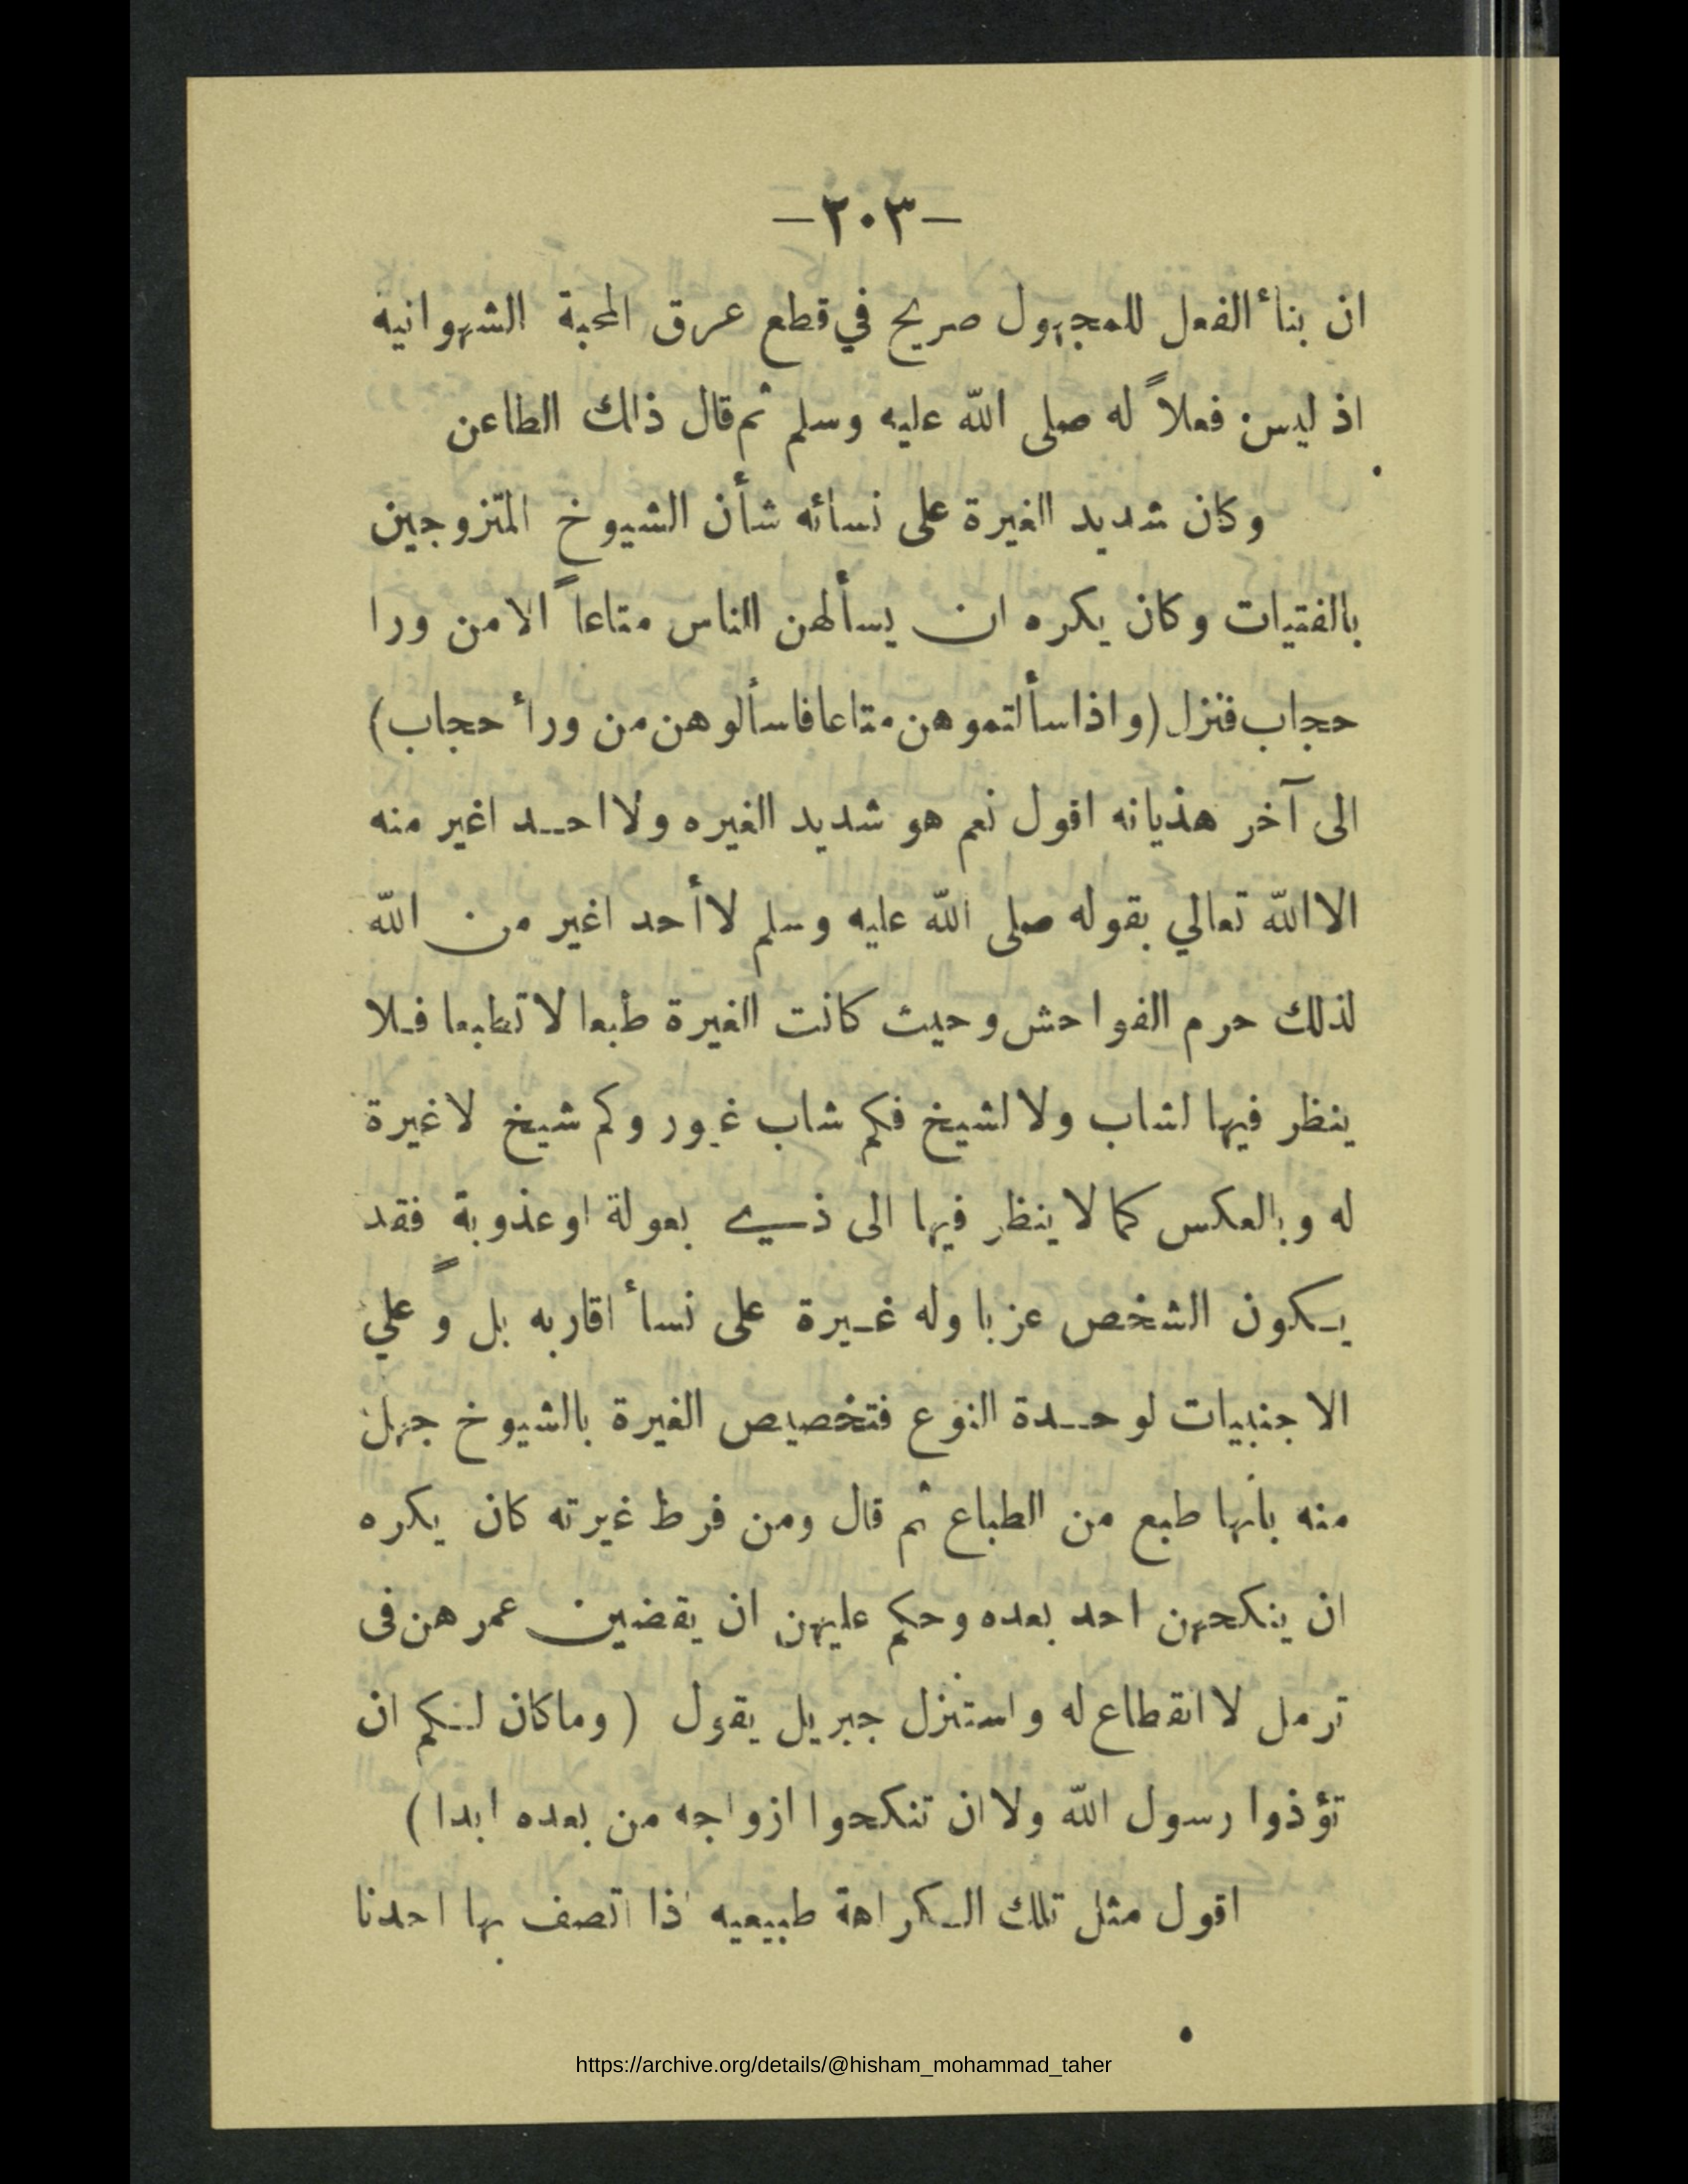 —٢٠٣—
ان بنأ الفعل للمجهول صريح في قطع عرق المحبة الشهوانيه
اذ ليس فعلاً له صلى الله عليه وسلم ثم قال ذالك الطاعن
وكان شديد الغيرة على نسائه شأن الشيوخ المتزوجين
بالفتيات وكان يكره ان يسألهن الناس متاعاً الا من ورا
حجاب فنزل (واذا سألتموهن متاعا فاسألوهن من ورأ حجاب)
الى آخر هذيانه اقول نعم هو شديد الغيره ولا احد اغير منه
الا الله تعالي بقوله صلى الله عليه وسلم لا أحد اغير من الله
لذلك حرم الفواحش وحيث كانت الغيرة طبعا لا تطبعا فلا
ينظر فيها لشاب ولا لشيخ فكم شاب غيور وكم شيخ لا غيرة
له وبالعكس كما لا ينظر فيها الى ذي بعولة او عذوبة فقد
يكون الشخص عزبا وله غيرة على نسأ اقاربه بل وً علي
الاجنبيات لوحدة النوع فتخصيص الغيرة بالشيوخ جهل
منه بأنها طبع من الطباع ثم قال ومن فرط غيرته كان يكره
ان ينكحهن احد بعده وحكم عليهن ان يقضين عمرهن فى
ترمل لا انقطاع له واستنزل جبريل يقول (وما كان لكم ان
تؤذوا رسول الله ولا ان تنكحوا ازواجه من بعده ابدا)
اقول مثل تلك الكراهة طبيعيه اذا اتصف بها احدنا
https://archive.org/details/@hisham_mohammad_taher